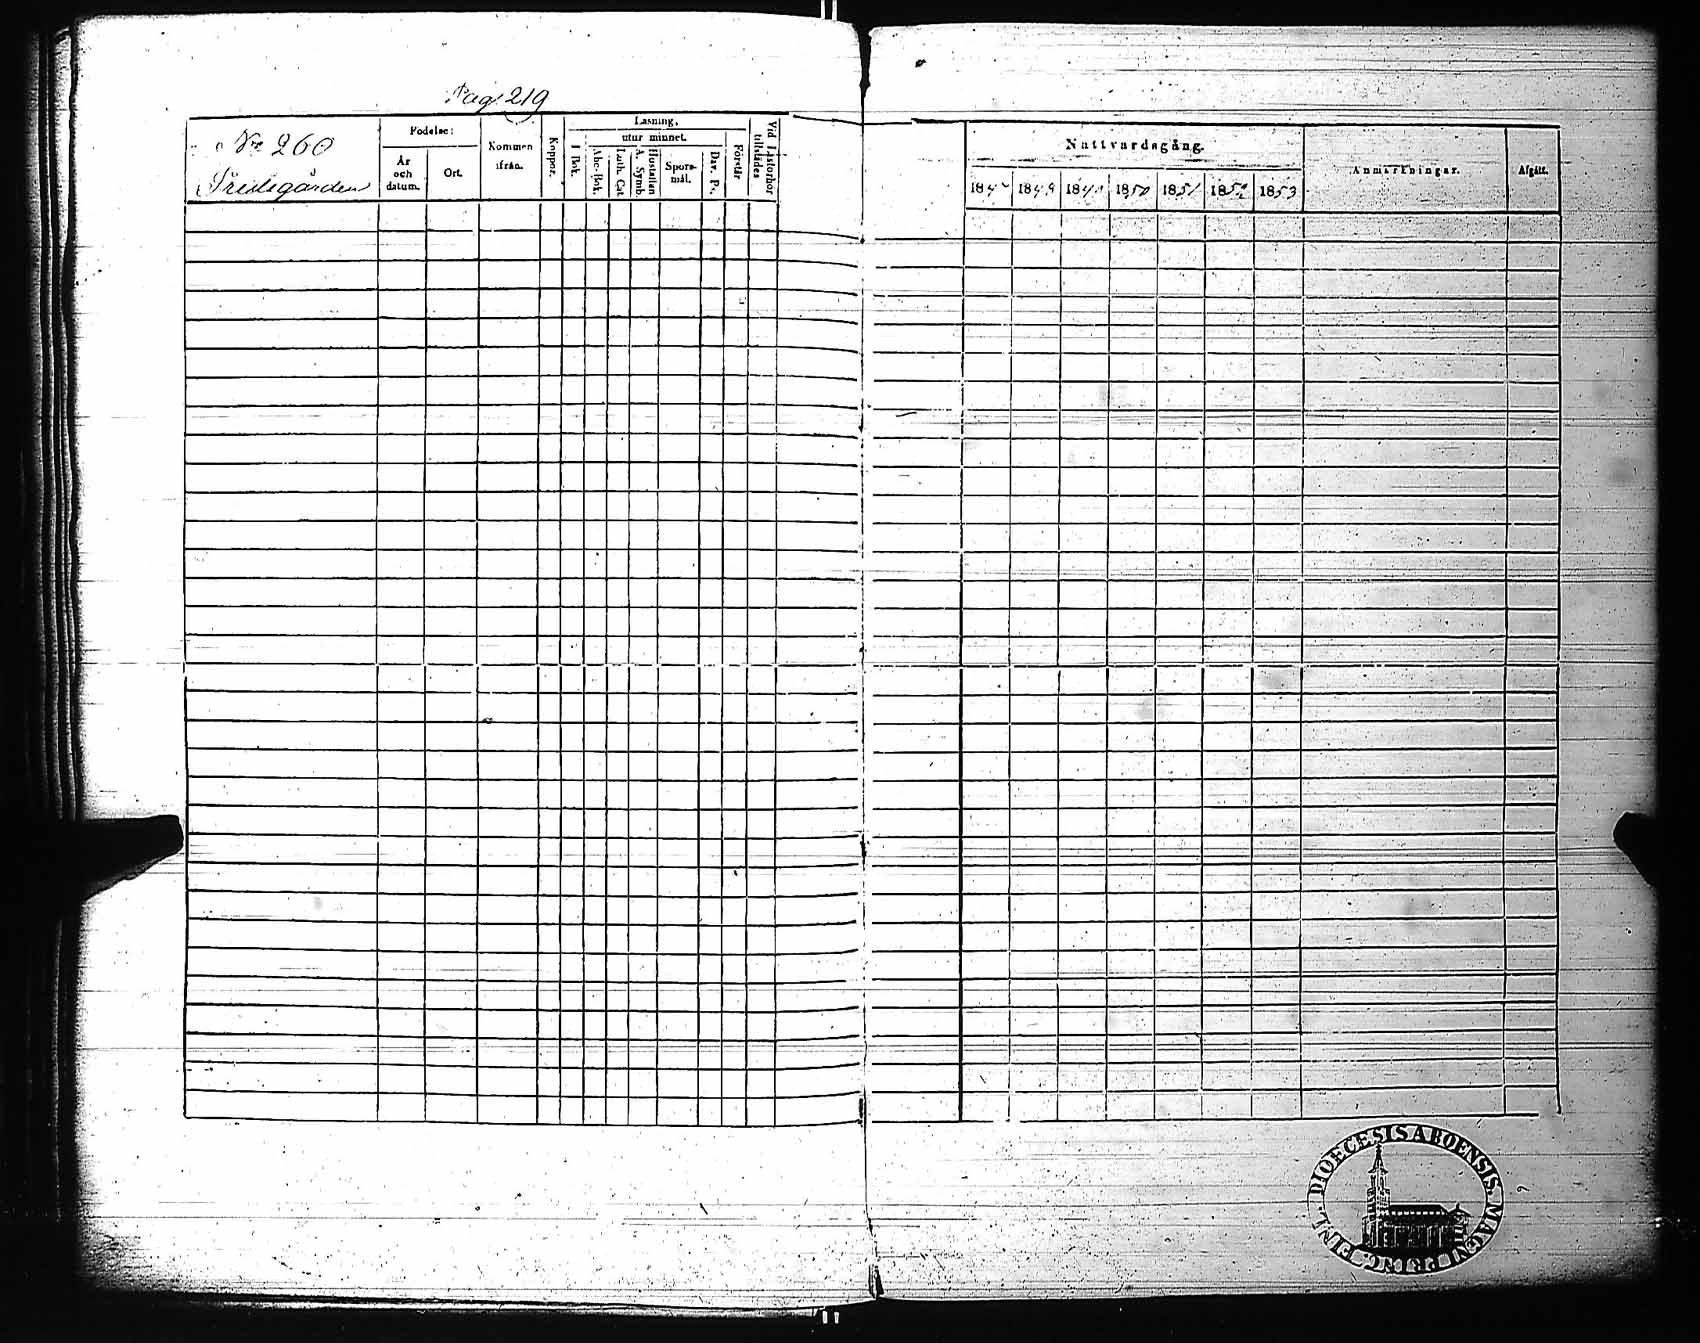 Pag. 219
No 260
Födelse:
År
och
datum.
Ort.
Kommen
ifrån.
Koppor.
Läsning,
utur minnet.
I Bok.
Abc-Bok.
Luth. Cat.
Hustaflan
A. Symb.
Spörs-
mål.
Dav. Ps.
Förstår
Vid Läsförhör
tillstädes
Nattvardsgång.
1849
1850
1851
1852
1853
Anmärkningar.
Afgått.
DIOECESIS ABOENSIS. MAGNI PRINC. FINL.